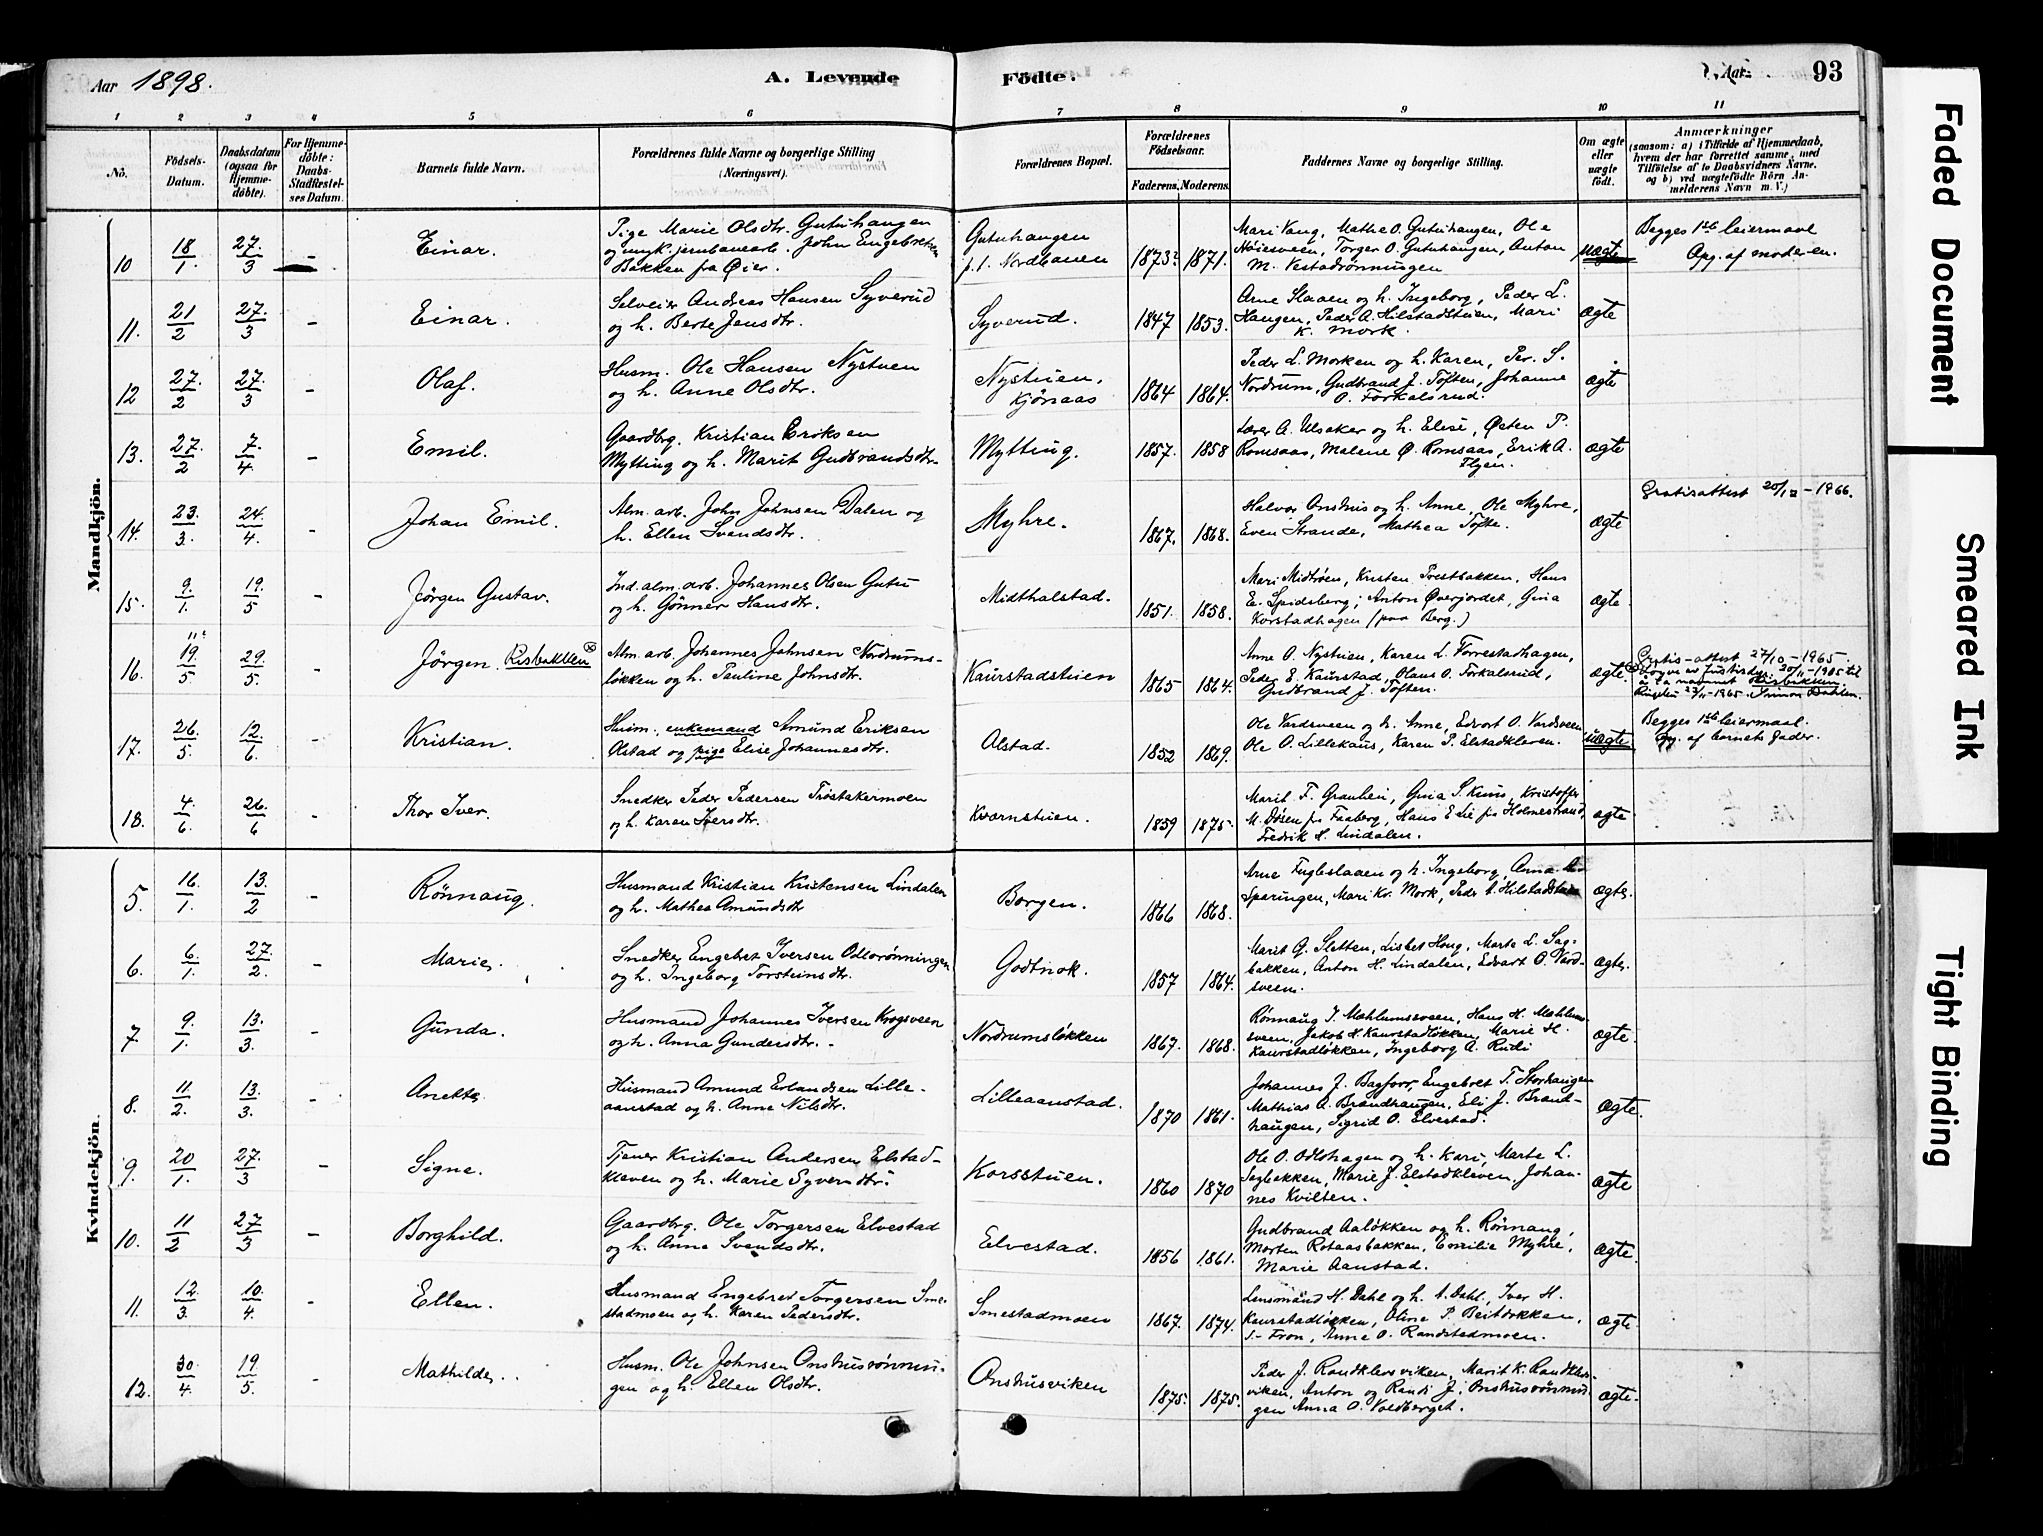 Aar 1898. A. Levende Födte. Aar 93
1 2 3 4 5 6 7 8 9 10 11
No.
Födsels-Datum.
Daabsdatum (ogsaa for Hjemmedöbte).
For Hjemmedöbte: Daabs-Stadfæstelses Datum.
Barnets fulde Navn.
Forældrenes fulde Navne og borgerlige Stilling (Næringsvei).
Forældrenes Bopæl.
Forældrenes Födselsaar.
Faderens. Moderens.
Faddernes Navne og borgerlige Stilling.
Om ægte eller uægte födt.
Anmærkninger
(saasom: a) i Tilfælde af Hjemmedaab, hvem der har forrettet samme, med Tilföielse af to Daabsvidners Navne, og b) ved uægtefödte Börn Anmelderens Navn m. V.)
Mandkjön.
10 18/1. 27./3 - Einar. Pige Marie Olsdtr. Gutuhaugen
og ungk. jernbanearb. John Engebretsen
Bakken fra Øier. Gutuhaugen
p.t. Nordbanen 1873? 1871. Mari Vang, Mathe O. Gutuhaugen, Ole
Høiersveen, Torger O. Gutuhaugen, Anton
M. Vestadrønningen uægte Begges 1ste leiermaal
Opg. af moderen.
11. 21/2 27./3 - Einar. Selveier Andreas Hansen Syverud
og h. Berte Jensdtr. Syverud. 1847 1853. Arne Slaaen og h. Ingeborg, Peder L.
Haugen, Peder A. Hilstadstuen, Mari
K. Mork. ægte
12 27./2 27./3 - Olaf. Husm. Ole Hansen Nystuen
og h. Anne Olsdtr. Nystuen,
Kjönaas 1864 1864. Peder L. Morken og h. Karen, Per. S.
Nordrum, Gudbrand J. Töften, Johanne
O. Forkalsrud. ægte
13. 27./2 7./4. - Emil. Gaardbrg. Kristian Eriksen
Mytting og h. Marit Gudbrandsdtr. Mytting. 1857. 1858 Lærer A. Ulsaker og h. Elise, Østen P.
Romsaas, Malene Ø. Romsaas, Erik A.
Flyen. ægte
14. 23./3. 24./4. - Johan Emil. Alm. arb. John Johnsen Dalen og
h. Ellen Svendsdtr. Myhre. 1867. 1868. Halvor Onshus og h. Anne, Ole Myhre,
Even Strande, Mathea Tofte. ægte Gratisattest 20/12 - 1966.
15. 9./1. 19./5 - Jörgen Gustav. Ind. alm. arb. Johannes Olsen Gutu
og h. Gönner Hansdtr. Midthalstad. 1851. 1858. Mari Midtrøen, Kristen Prestbakken, Hans
E. Spidsberg, Anton Øverjordet, Gina
Korstadhagen (paa Berg.) ægte
16. 19/5 29./5. - Jörgen. Risbakken Alm. arb. Johannes Johnsen Nordrums-
løkken og h. Pauline Johnsdtr. Kaurstadstuen 1865 1864. Anne O. Nystuen, Karen L. Forrestadhagen,
Peder E. Kaurstad, Olaus O. Forkalsrud,
Gudbrand J. Töften. ægte Gratis-attest 27/10 - 1965
17. 26./5. 12./6. Kristian. Husm. enkemand Amund Eriksen
Olstad og pige Elise Johannesdtr. Olstad. 1852 1869. Ole Vardsveen og h. Anne, Edvart O. Vardsveen
Ole O. Lillekaus, Karen P. Elstadkleven. uægte Begges 1ste leiermaal.
Opg. af barnets fader.
18. 4./6. 26./6 - Thor Iver. Snedker Peder Pedersen Trøstakermoen
og h. Karen Iversdtr. Kvarnstuen. 1859 1875. Marit F. Grauhei, Gina S. Kuus, Kristoffer
M. Døsen fra Faaberg, Hans E Lie fra Holmestrand,
Fredrik H. Lindalen. ægte
Kvindekjön.
5. 16./1. 13./2 - Rönnaug. Husmand Kristian Kristensen Lindalen
og h. Mathea Amundsdtr Borgen. 1866 1868. Arne Fugleslaaen og h. Ingeborg, Anna
Sparingen, Mari Kr. Mork, Peder A. Hilstadstuen ægte.
6. 6./1. 27./2. - Marie. Snedker Engebret Iversen Odlorønningen
og h. Ingeborg Torsteinsdtr. Godtnok. 1857 1864. Marit G. Sletten, Lisbet Haug, Marte L. Sag-
bakken, Anton H. Lindalen, Edvart O. Vard-
sveen. ægte.
7 9./1. 13./3. - Gunda. Husmand Johannes Iversen Krogsveen
og h. Anna Gundersdtr. Nordrumsløkken 1867. 1868. Rønnaug J. Mæhlumsveen, Hans H. Mæhlum-
sveen, Jakob H. Kaurstadløkken, Marie H.
Kaurstadløkken, Ingeborg A. Rudi ægte.
8. 11/2. 13./3. - Anette. Husmand Amund Erlandsen Lille-
aanstad og h. Anne Nilsdtr. Lilleaanstad. 1870 1861. Johannes J. Bagforr, Engebret T. Storhaugen
Mathias A. Brandhaugen, Eli J. Brand-
haugen, Sigrid O. Elvestad. ægte.
9. 20/1. 27./3 - Signe. Tjener Kristian Andersen Elstad-
kleven og h. Marie Syversdtr. Korsstuen. 1860 1870 Ole O. Odlohagen og h. Kari, Marte L.
Sagbakken, Marie J. Elstadkleven, Johan-
nes Kvilten. ægte
10. 11/2 27/3 - Borghild. Gaardbrg. Ole Torgersen Elvestad
og h. Anne Svendsdtr. Elvestad. 1856 1861. Gudbrand Aaløkken og h. Rönnaug,
Morten Rotaasbakken, Emilie Myhre,
Marie Aanstad. ægte
11. 12./3. 10./4. - Ellen. Husmand Engebret Torgersen Sme-
stadmoen og h. Karen Pedersdtr. Smestadmoen 1867. 1874. Lensmand H. Dahl og h. A. Dahl, Iver H.
Kaurstadløkken, Oline P. Beitdokken,
S.-Fron, Anne O. Randstadmoen. ægte
12. 30./4. 19/5. - Mathilde. Husm. Ole Johnsen Onshusrønnin-
gen og h. Ellen Olsdtr. Onshusviken 1875. 1875. Peder J. Randklevsviken, Marit K. Randklevs-
viken, Anton og Randi J. Onshusrønnin-
gen Anna O. Voldberget. ægte.
Faded Document
Smeared Ink
Tight Binding